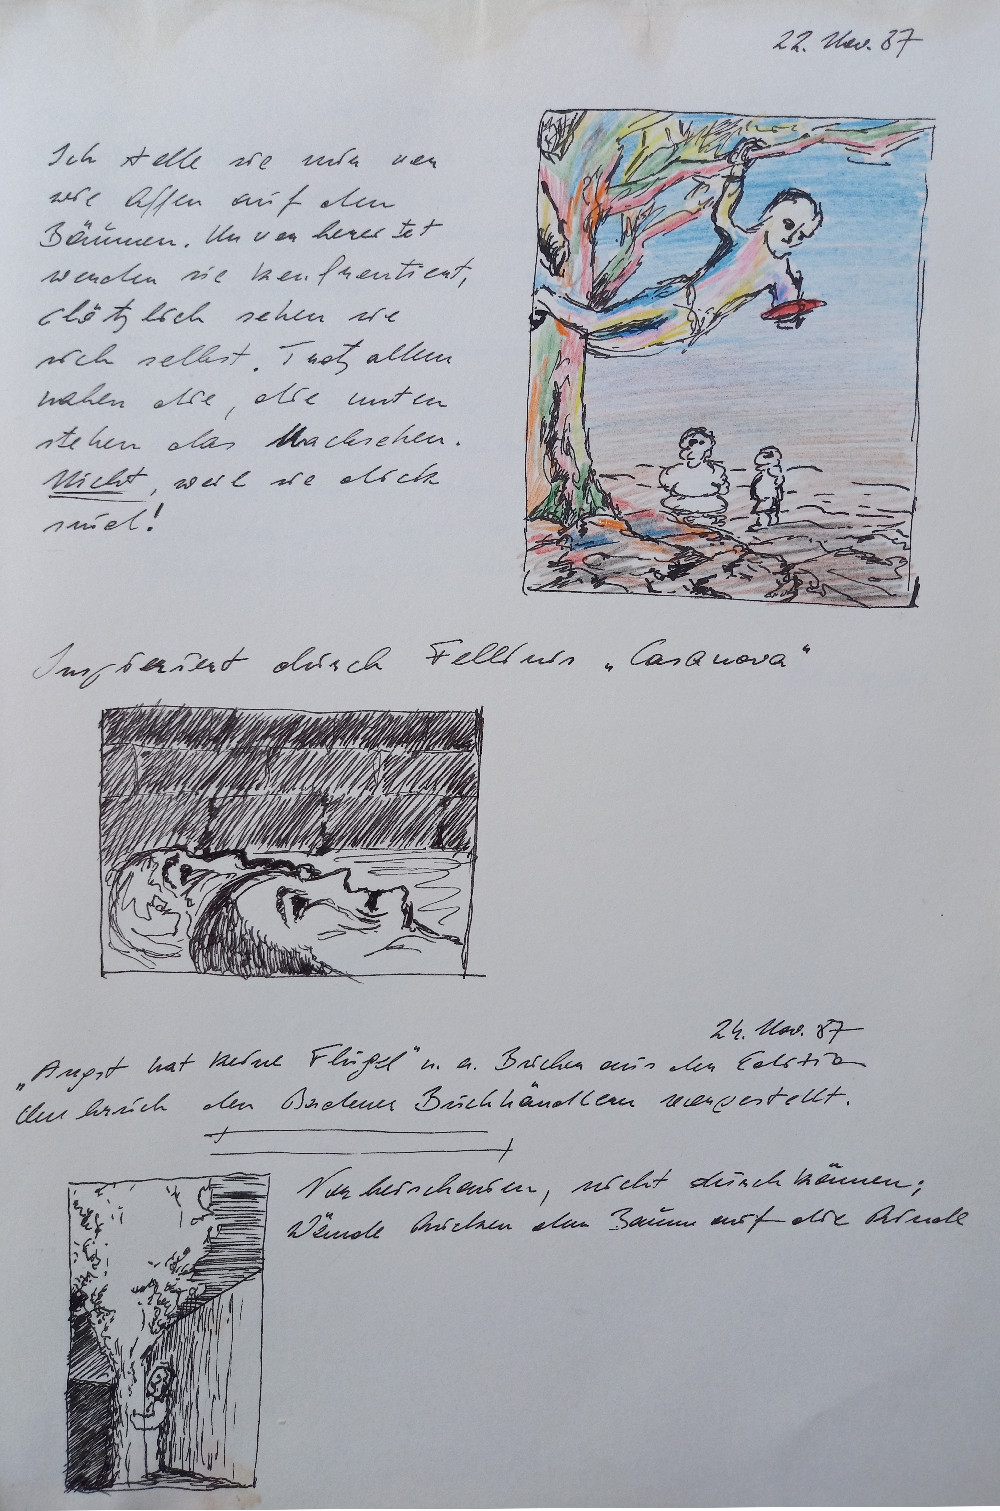 22. Nov. 87
Ich stelle sie mir vor
wie Affen auf den
Bäumen. Unvorbereitet
werden sie konfrontiert,
plötzlich sehen sie
sich selbst. Trotz allem
haben die, die unten
stehen das Nachsehen.
Nicht, weil sie dick
sind!
Inspieriert durch Fellinis „Casanova“
24. Nov. 87
„Angst hat keine Flügel“ u. a. Bücher aus der Edition
Umbruch den Badener Buchhändlern vorgestellt.
Vorbeischauen, nicht durch können;
Wände rücken dem Baum auf die Rinde